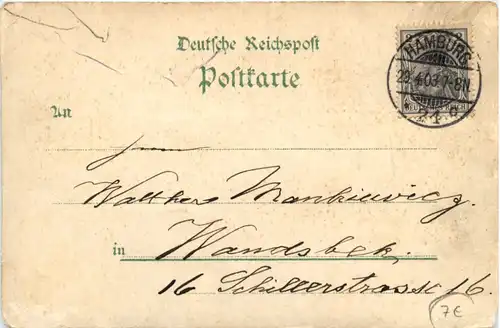 Deutsche Reichspost
Postkarte
HAMBURG
22.4.03.7-8N
An
Walther Mankiewicz.
in Wandsbek.
16 Schillerstrasse 16.
7€